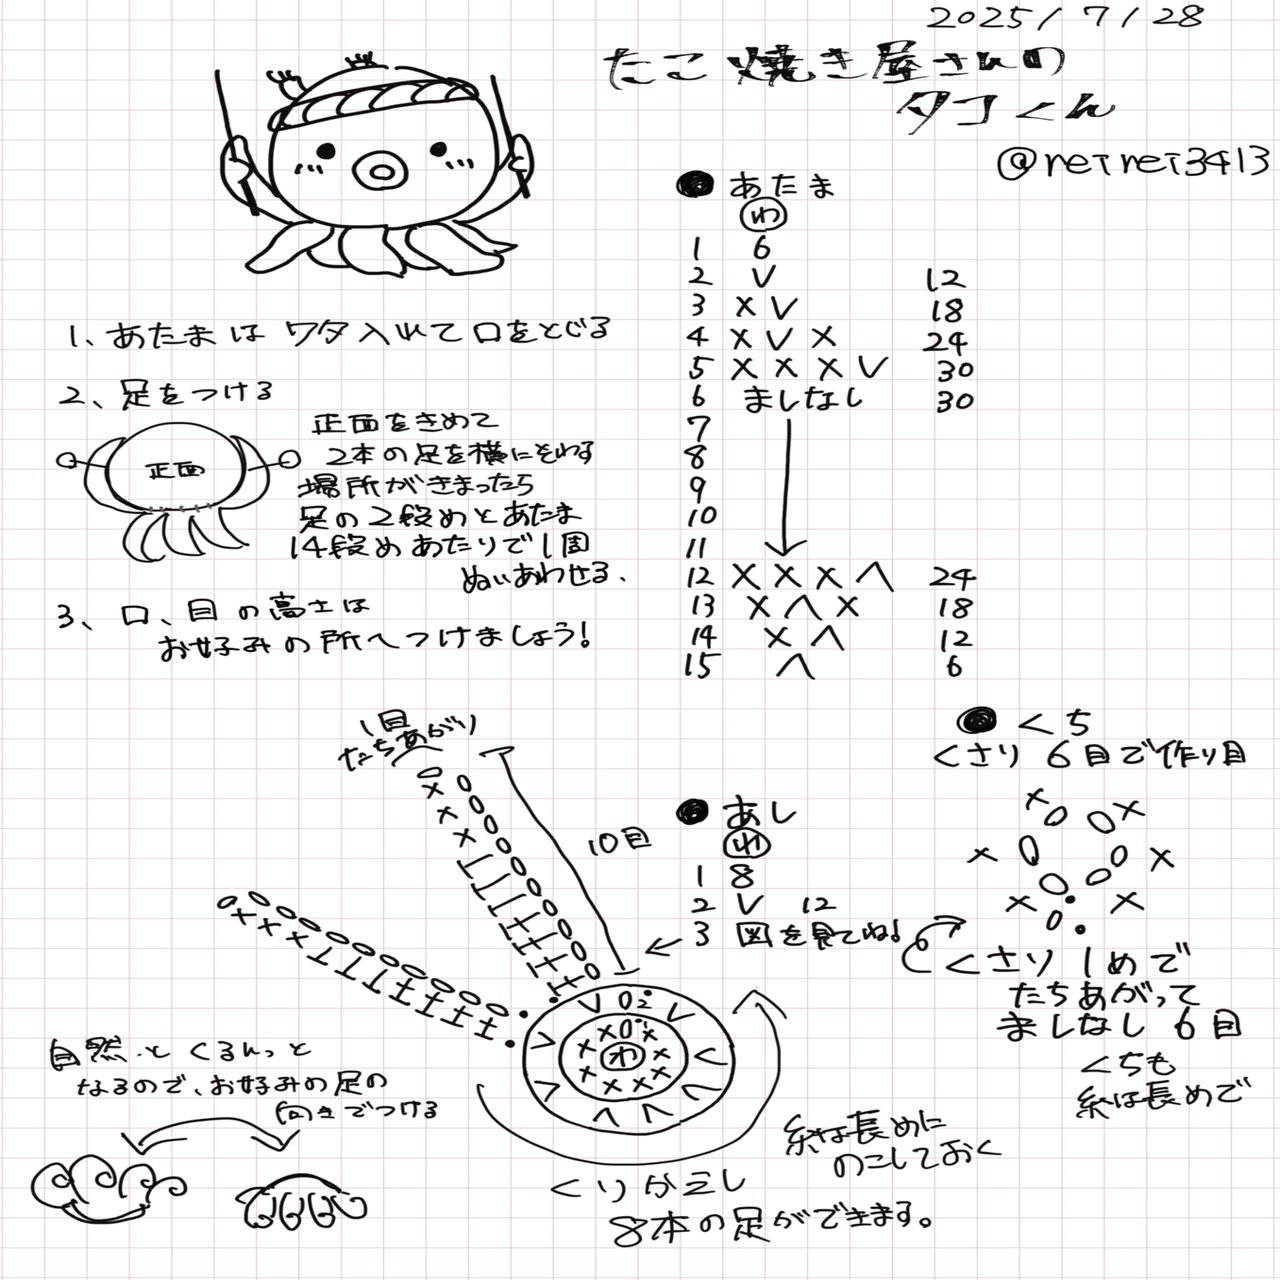 2025/7/28
たこ焼き屋さんの
タコくん
@reirei3413
● あたま
わ
1 6
2 V 12
3 X V 18
4 X V X 24
5 X X X V 30
6 ましなし 30
7
8
9
10
11
12 X X X Λ 24
13 X Λ X 18
14 X Λ 12
15 Λ 6
1、あたまは ワタ入れて口をとじる
2、足をつける
正面
正面をきめて
2本の足を横にそわす
場所がきまったら
足の2段めとあたま
14段めあたりで1周
ぬいあわせる、
3、口、目の高さは
お好みの所へつけましょう!
● くち
くさり 6目で作り目
くさり1めで
たちあがって
ましなし6目
くちも
糸は長めで
● あし
わ
1 8
2 V 12
3 図を見てね!
1目
たちあがり
10目
わ
糸は長めに
のこしておく
くりかえし
8本の足ができます。
自然とくるんっと
なるので、お好みの足の
向きでつける